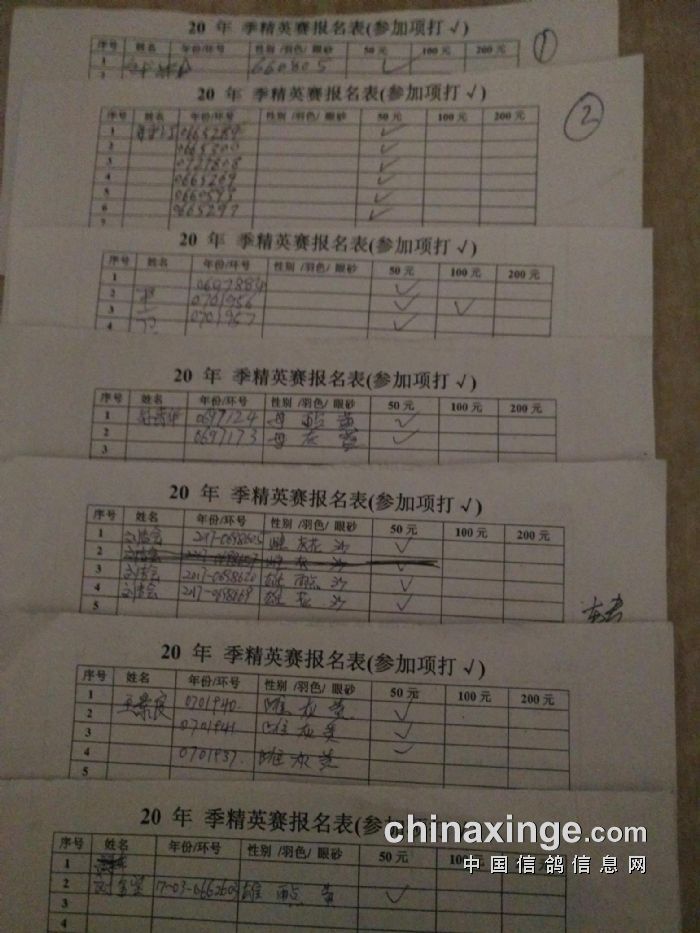 20 年 季精英赛报名表(参加项打 √)
序号 姓名 年份/环号 性别 /羽色/ 眼砂 50 元 100 元 200 元
①
1 660805 ✓
2
20 年 季精英赛报名表(参加项打 √)
②
序号 姓名 年份/环号 性别 /羽色/ 眼砂 50 元 100 元 200 元
1 0665289 ✓
2 0665300 ✓
3 ✓
4 0665269 ✓
5 0660593 ✓
6 0665297 ✓
20 年 季精英赛报名表(参加项打 √)
序号 姓名 年份/环号 性别 /羽色/ 眼砂 50 元 100 元 200 元
1 ✓
2 0701956 ✓ ✓
3 0701957 ✓
4
20 年 季精英赛报名表(参加项打 √)
序号 姓名 年份/环号 性别 /羽色/ 眼砂 50 元 100 元 200 元
1 0697124 ✓
2 0697173 灰 黄 ✓
3
20 年 季精英赛报名表(参加项打 √)
序号 姓名 年份/环号 性别 /羽色/ 眼砂 50 元 100 元 200 元
1 2017-0698605 雌 灰花 沙 ✓
2
3 2017-0698620 雄 雨点 沙 ✓
4 2017-0698669 雄 灰 沙 ✓
5
20 年 季精英赛报名表(参加项打 √)
序号 姓名 年份/环号 性别 /羽色/ 眼砂 50 元 100 元 200 元
1 王景良 0701940 雌 灰 黄 ✓
2
3 0701941 雌 灰 黄 ✓
4 0701937 雌 灰 黄 ✓
5
20 年 季精英赛报名表(参加项打 √)
序号 姓名 年份/环号 性别 /羽色/ 眼砂 50 元 100 元 200 元
1
2 雄 雨点 黄 ✓
3
4
chinaxinge.com
中国信鸽信息网